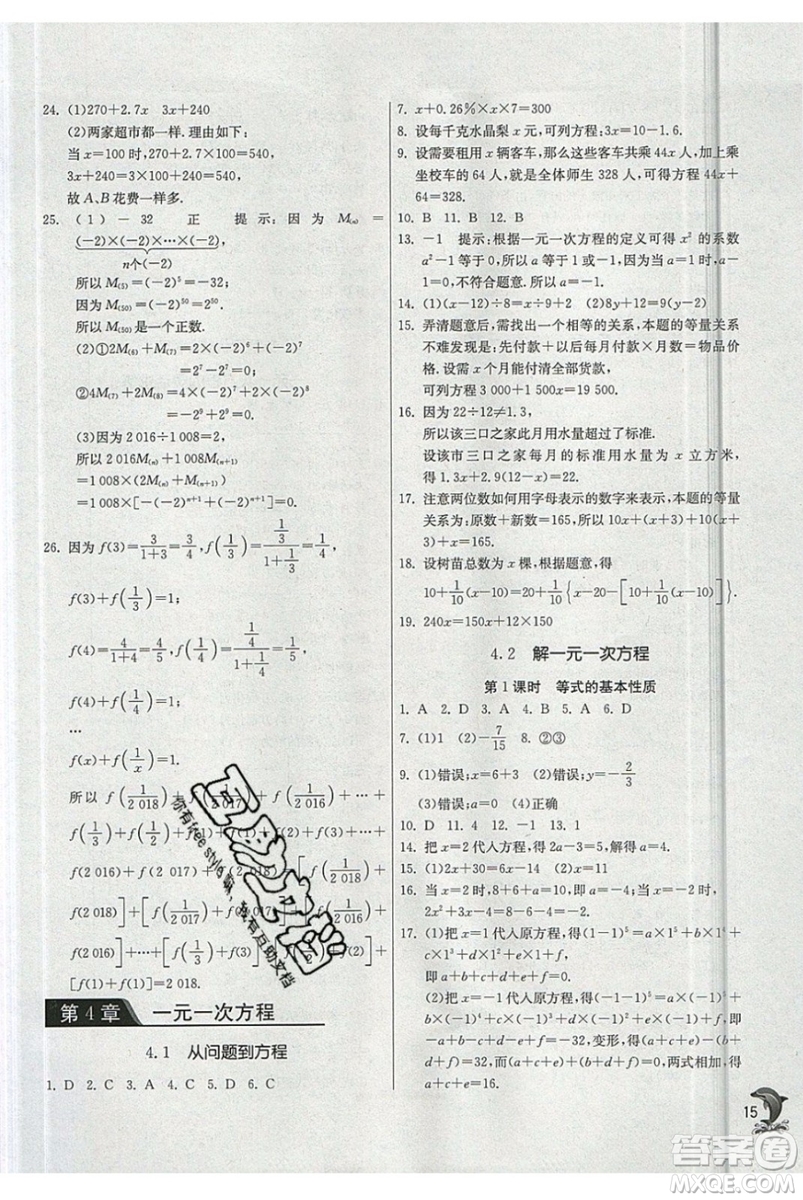 24. (1)270+2.7x  3x+240
(2)两家超市都一样. 理由如下:
当 x=100 时,270+2.7x=540,
3x+240=3×100+240=540,
故 A、B 花费一样多.
25. (1)-32 正 提示:因为 M₍ₙ₎=
(-2)×(-2)×…×(-2),
n个(-2)
所以 M₍₅₎=(-2)⁵=-32;
因为 M₍₅₀₎=(-2)⁵⁰=2⁵⁰.
所以 M₍₅₀₎是一个正数.
(2)①2M₍₆₎+M₍₇₎=2×(-2)⁶+(-2)⁷
=2⁷-2⁷=0;
②4M₍₇₎+2M₍₈₎=4×(-2)⁷+2×(-2)⁸
=-2⁹+2⁹=0.
(3)因为 2 016÷1 008=2,
所以 2 016M₍ₙ₎+1 008M₍ₙ₊₁₎
=1 008×(2M₍ₙ₎+M₍ₙ₊₁₎)
=1 008×[-(-2)ⁿ⁺¹+(-2)ⁿ⁺¹]=0.
26. 因为 f(3)=3/(1+3)=3/4,f(1/3)=(1/3)/(1+1/3)=1/4,
f(3)+f(1/3)=1;
f(4)=4/(1+4)=4/5,f(1/4)=(1/4)/(1+1/4)=1/5,
f(4)+f(1/4)=1;
…
f(x)+f(1/x)=1.
所以 f(1/2 018)+f(1/2 017)+f(1/2 016)+…+
f(1/3)+f(1/2)+f(1)+f(2)+f(3)+…+
f(2 016)+f(2 017)+f(2 018)=[f(1/2 018)+
f(2 018)]+[f(1/2 017)+f(2 017)]+[f(1/2 016)+
f(2 016)]+…+[f(1/3)+f(3)]+[f(1/2)+f(2)]+
[f(1)+f(1)]=2 018.
第 4 章 一元一次方程
4.1 从问题到方程
1. D 2. C 3. A 4. C 5. D 6. C
7. x+0.26%×x×7=300
8. 设每千克水晶梨 x 元,可列方程:3x=10-1.6.
9. 设需要租用 x 辆客车,那么这些客车共乘 44x 人,加上乘
坐校车的 64 人,就是全体师生 328 人,可列方程为 44x+
64=328.
10. B 11. B 12. B
13. -1 提示:根据一元一次方程的定义可得 x² 的系数
a²-1=0,所以 a 等于 1 或-1,但当 a=1 时,x 的系数 a-
1=0,不符合题意.
14. (1)(2)÷8=x÷9+2 (2)8y+4=9(y-2)
15. 弄清题意后,需找出一个相等的关系,本题的等量关系
不难发现是:先付款+以后每月付款×月数=物品价
格. 设需 x 个月能付清全部货款,
可列方程 3 000+1 500x=19 500.
16. 因为 22÷12≠1.3,
所以该三口之家此月用水量超过了标准.
设该市三口之家每月的标准用水量为 x 立方米,
得 1.3x+2.9(12-x)=22.
17. 注意两位数如何用字母表示的数字来表示,本题的等量
关系为:原数+新数=165,所以 10x+(x+1)+10(x+
1)+x=165.
18. 设树苗总数为 x 棵,根据题意,得
10+1/10(x-10)=20+1/10{x-20-[10+1/10(x-10)]}.
19. 240x=150x+12×150
4.2 解一元一次方程
第 1 课时 等式的基本性质
1. A 2. D 3. A 4. B 5. A 6. D
7. (1)1 (2)-7/15 8. ②③
9. (1)错误;x=6+3 (2)错误;y=-2/3
(3)错误;a=0 (4)正确
10. D 11. 4 12. -1 13. 1
14. 把 x=2 代入方程,得 2a-3=5,解得 a=4.
15. (1)2x+30=10x-10 (2)x=11
16. 当 x=2 时,8+6+2=4-4-a,所以 a=-16;当 x=-2 时,
2x²+x²+2=8-6-4=-2.
17. (1)把 x=1 代入原方程,得(1-1)⁵=a×1⁵+b×1⁴+c×
1³+d×1²+e×1+f,即 a+b+c+d+e+f=0.
(2)把 x=-1 代入原方程,得(-1-1)⁵=a×(-1)⁵+b
×(-1)⁴+c×(-1)³+d×(-1)²+e×(-1)+f,所以
-a+b-c+d-e+f=-32,变形,得 a-b+c-d+e-
f=32. 因为 a+b+c+d+e+f=0,两式相加,可得
a+c+e=16.
15
你有free style嘛，我有互助文档
答案圈
MXQE.COM